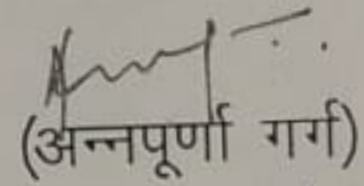 (अन्नपूर्णा गर्ग)